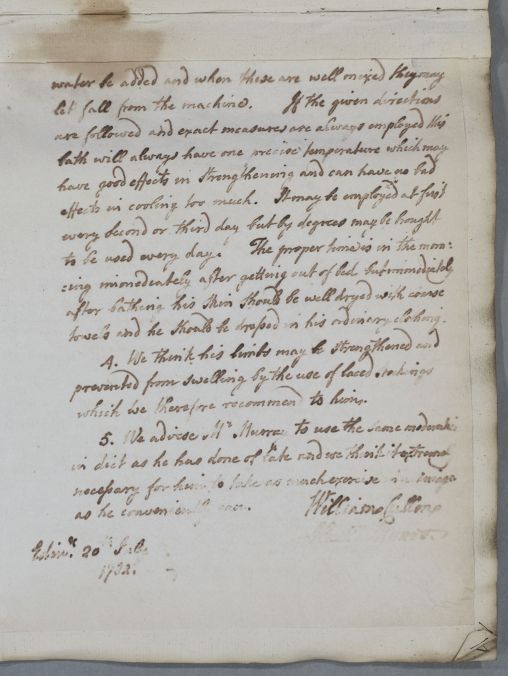 water be added and when these are well mixed they may
let fall from the machine. If the given directions
are followed and exact measures are always employed this
bath will always have one precise temperature which may
have good effects in strengthening and can have no bad
effects in cooling too much. It may be employed at first
every second or third day but by degrees may be brought
to be used every day. The proper time is in the mor=
ning immediately after getting out of bed but immediately
after bathing his skin should be well dryed with coarse
towels and he should be dressed in his ordinary clothing.
4. We think his limbs may be strengthened and
prevented from swelling by the use of laced stockings
which we therefore recommend to him.
5. We advise Mr Murray to use the same moderation
in diet as he has done of late and we think it extremely
necessary for him to take as much exercise in
as he conveniently can. William Cullen
Monro.
Edinr. 20th July
1782.